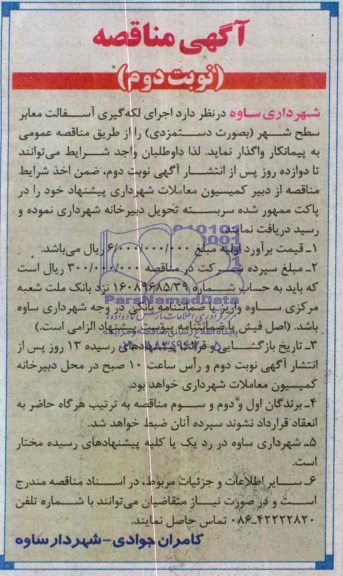 آگهی مناقصه
(نوبت دوم)
شهرداری ساوه درنظر دارد اجرای لکه‌گیری آسفالت معابر
سطح شهر (بصورت دستمزدی) را از طریق مناقصه عمومی
به پیمانکار واگذار نماید. لذا داوطلبان واجد شرایط می‌توانند
تا دوازده روز پس از انتشار آگهی نوبت دوم، ضمن اخذ شرایط
مناقصه از دبیر کمیسیون معاملات شهرداری پیشنهاد خود را در
پاکت ممهور شده سربسته تحویل دبیرخانه شهرداری نموده و
رسید دریافت نمایند.
۱ـ قیمت برآورد اولیه مبلغ ۶/۰۰۰/۰۰۰/۰۰۰ ریال می‌باشد.
۲ـ مبلغ سپرده شرکت در مناقصه ۳۰۰/۰۰۰/۰۰۰ ریال است
که باید به حساب شماره ۱۶۰۸۹۶۸۵/۳۹ نزد بانک ملت شعبه
مرکزی ساوه واریز یا ضمانتنامه بانکی در وجه شهرداری ساوه
باشد. (اصل فیش یا ضمانتنامه پیوست پیشنهاد الزامی است.)
۳ـ تاریخ بازگشایی و قرائت پیشنهادهای رسیده ۱۳ روز پس از
انتشار آگهی نوبت دوم و رأس ساعت ۱۰ صبح در محل دبیرخانه
کمیسیون معاملات شهرداری خواهد بود.
۴ـ برندگان اول و دوم و سوم مناقصه به ترتیب هرگاه حاضر به
انعقاد قرارداد نشوند سپرده آنان ضبط خواهد شد.
۵ـ شهرداری ساوه در رد یک یا کلیه پیشنهادهای رسیده مختار
است.
۶ـ سایر اطلاعات و جزئیات مربوط، در اسناد مناقصه مندرج
است و در صورت نیاز متقاضیان می‌توانند با شماره تلفن
۰۸۶-۴۲۲۲۲۸۲۰ تماس حاصل نمایند.
کامران جوادی-شهردار ساوه
ParsNamadData